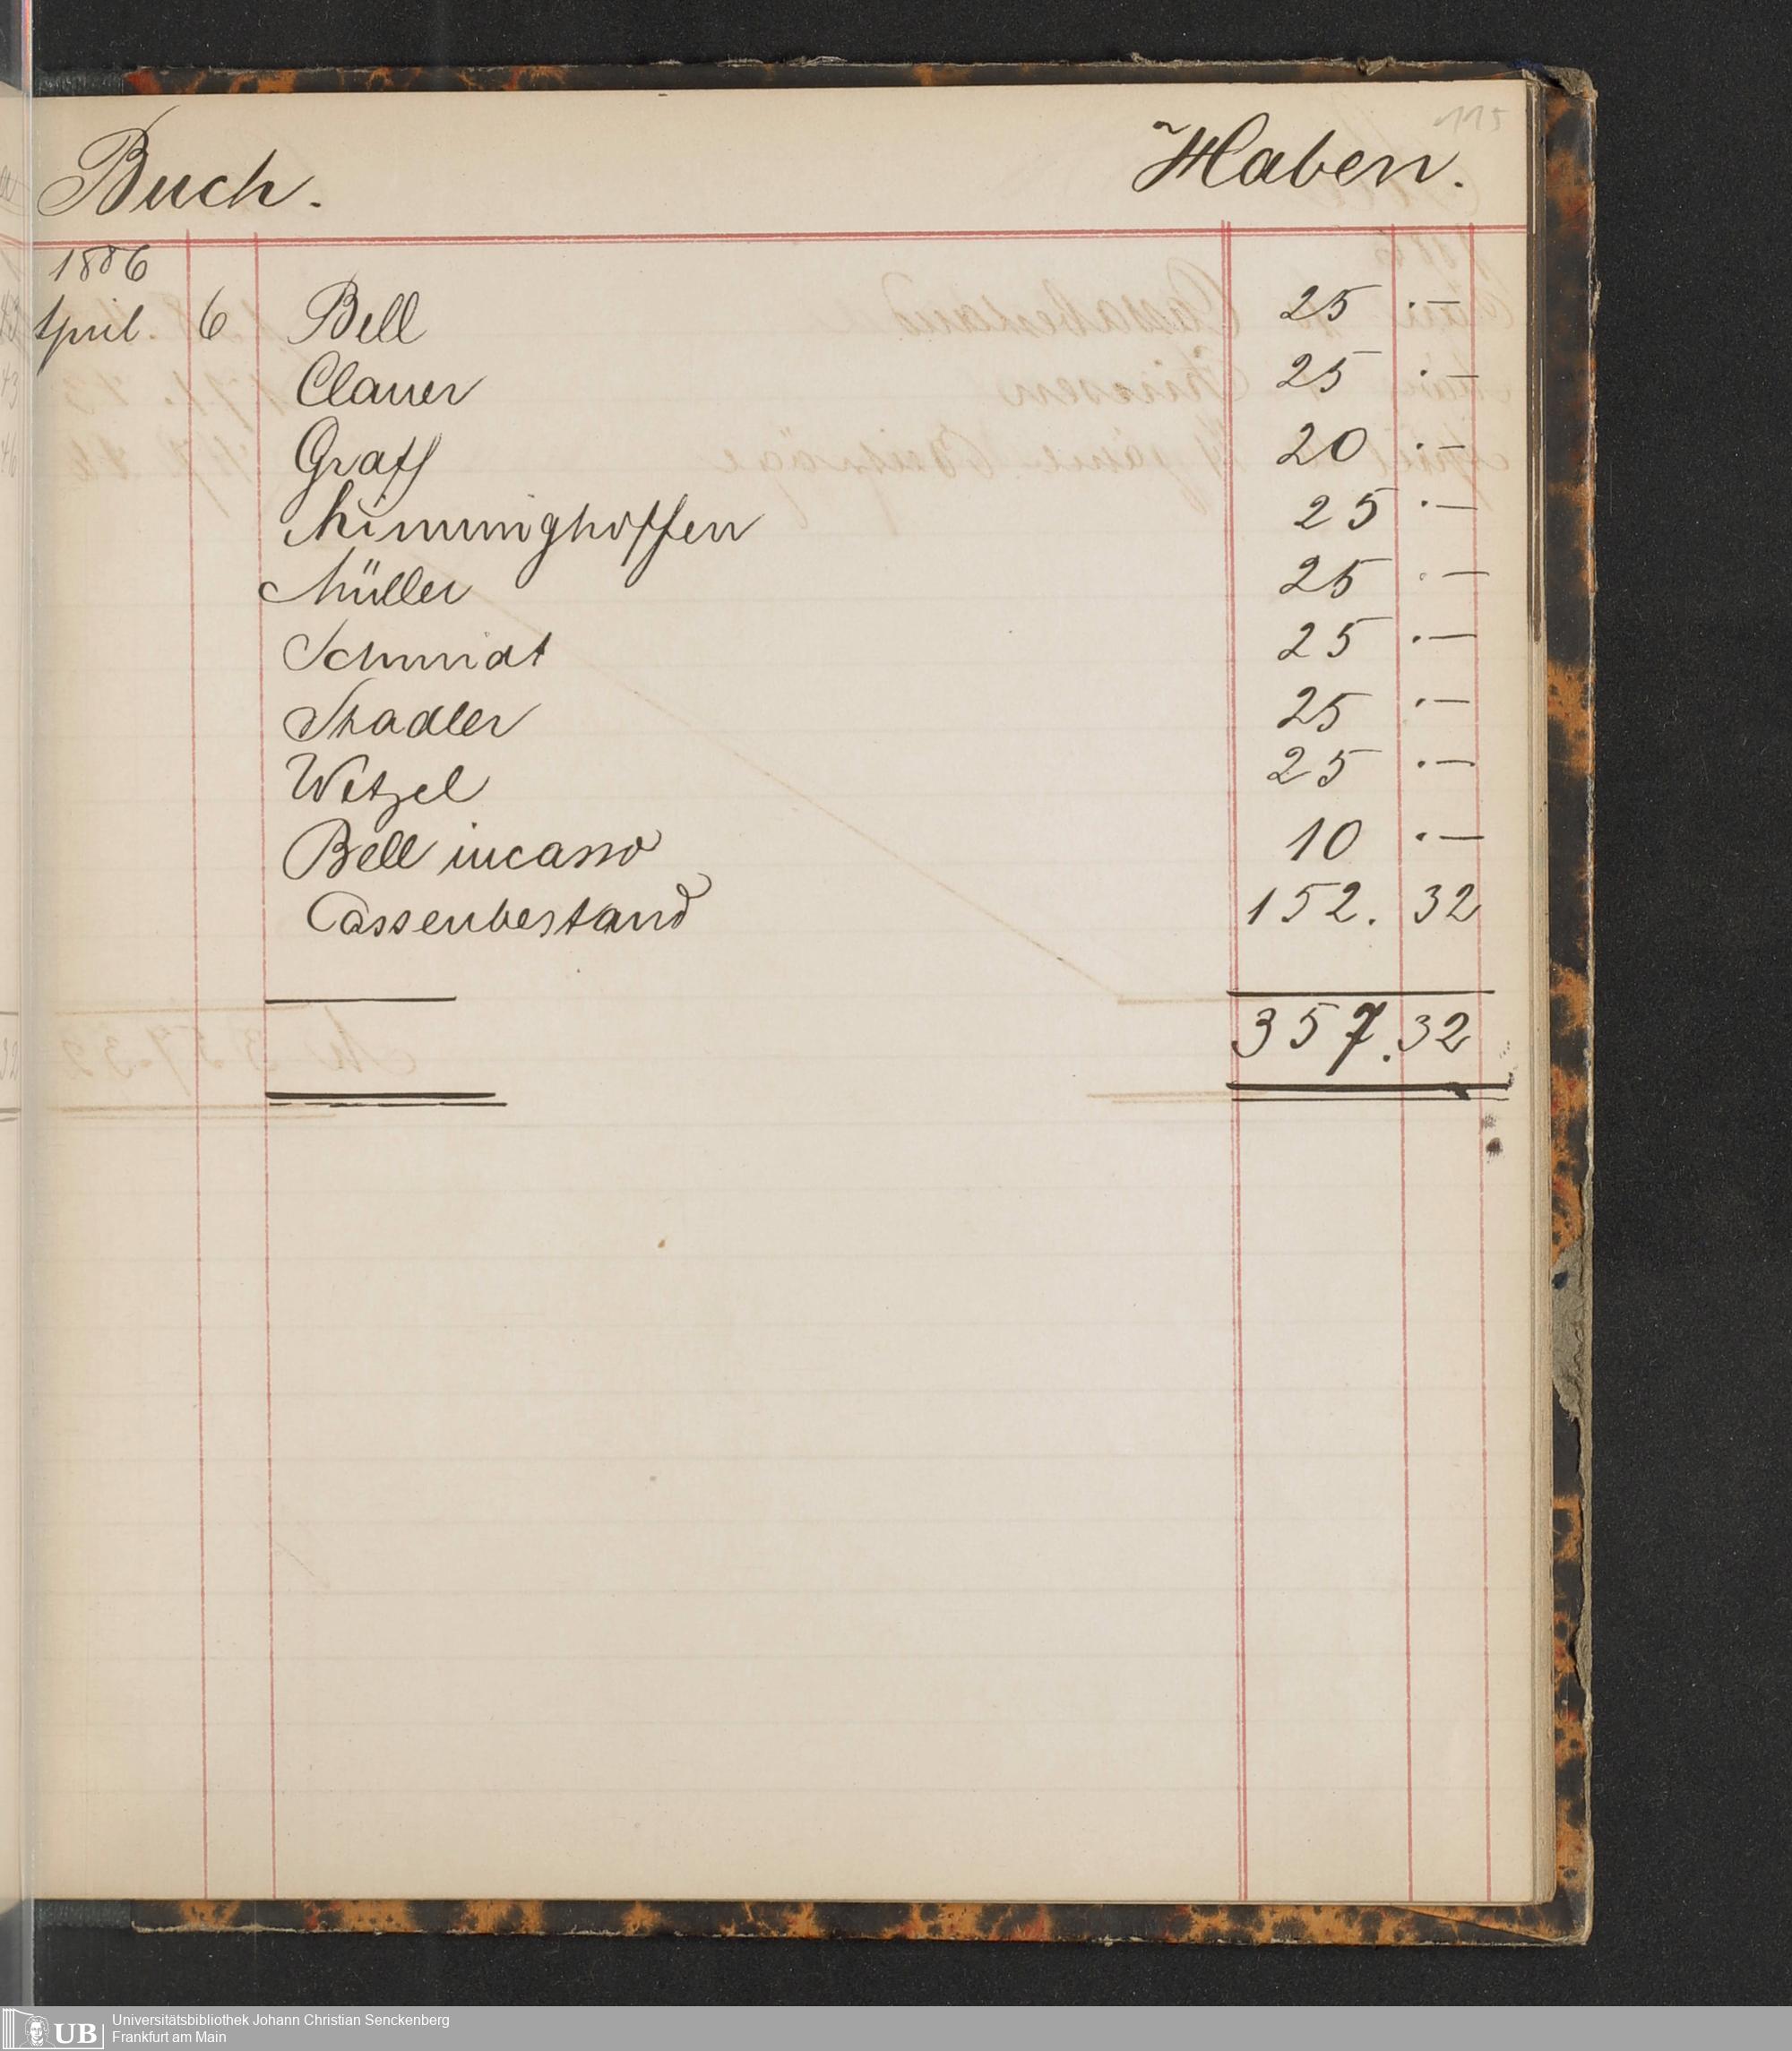 115
Buch. Haben.
1886
April. 6 Bell 25 .—
Clauer 25 .—
Graff 20 .—
Mimminghoffen 25 .—
Müller 25 .—
Schmidt 25 .—
Stadler 25 .—
Wetzel 25 .—
Bell incasso 10 .—
Cassenbestand 152. 32
357. 32
UB Universitätsbibliothek Johann Christian Senckenberg
Frankfurt am Main